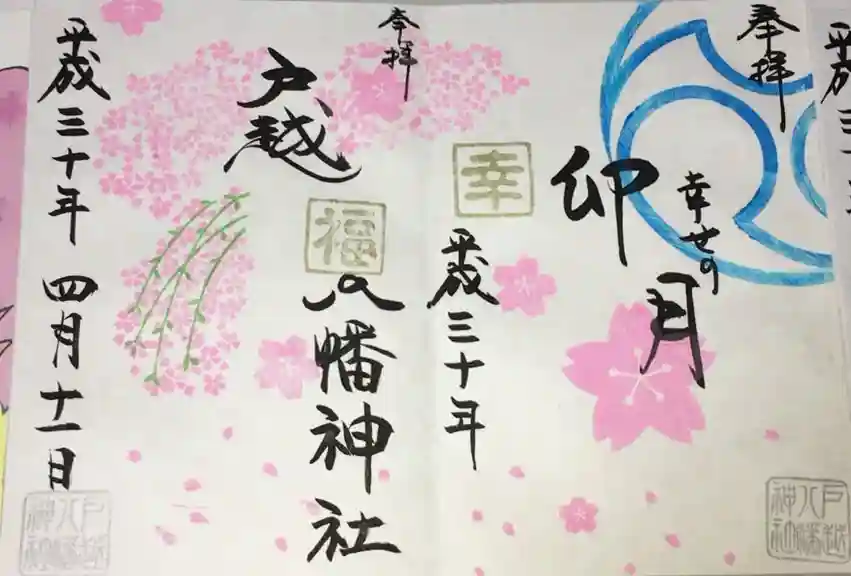 奉拝
幸せの
卯月
幸
平成三十年
奉拝
戸越
八幡神社
福
平成三十年 四月十一日
戸越
八幡
神社
戸越
八幡
神社
平成三